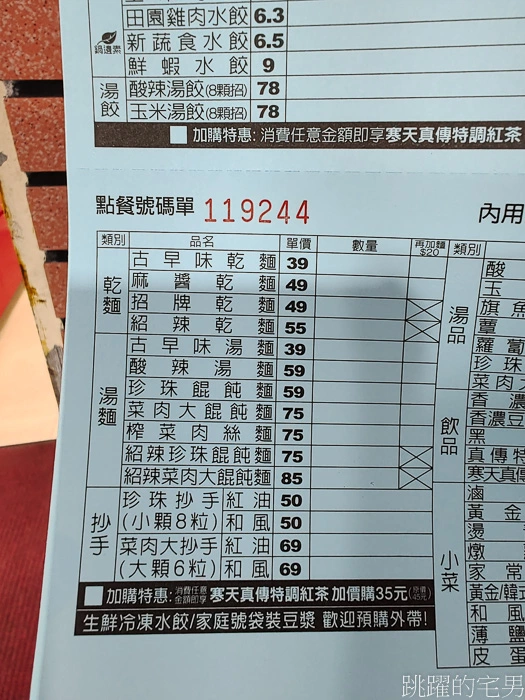 田園雞肉水餃 6.3
鍋邊素 新蔬食水餃 6.5
鮮蝦水餃 9
湯餃 酸辣湯餃(8顆招) 78
玉米湯餃(8顆招) 78
加購特惠: 消費任意金額即享寒天真傳特調紅茶
點餐號碼單 119244 內用
類別 品名 單價 數量 再加麵$20 類別
乾麵 古早味乾麵 39
麻醬乾麵 49
招牌乾麵 49
紹辣乾麵 55
湯麵 古早味湯麵 39
酸辣湯麵 59
珍珠餛飩麵 59
菜肉大餛飩麵 75
榨菜肉絲麵 75
紹辣珍珠餛飩麵 75
紹辣菜肉大餛飩麵 85
抄手 珍珠抄手(小顆8粒) 紅油 50
和風 50
菜肉大抄手(大顆6粒) 紅油 69
和風 69
加購特惠: 消費任意金額即享 寒天真傳特調紅茶 加價購35元(原價45元)
生鮮冷凍水餃/家庭號袋裝豆漿 歡迎預購外帶!
湯品 酸
玉
旗魚
蕈
蘿蔔
珍珠
菜肉
飲品 香濃
香濃豆
黑
真傳特
寒天真傳
小菜 滷
黃金
燙
燉
家常
黃金/韓式
和風
薄鹽
皮蛋
跳躍的宅男